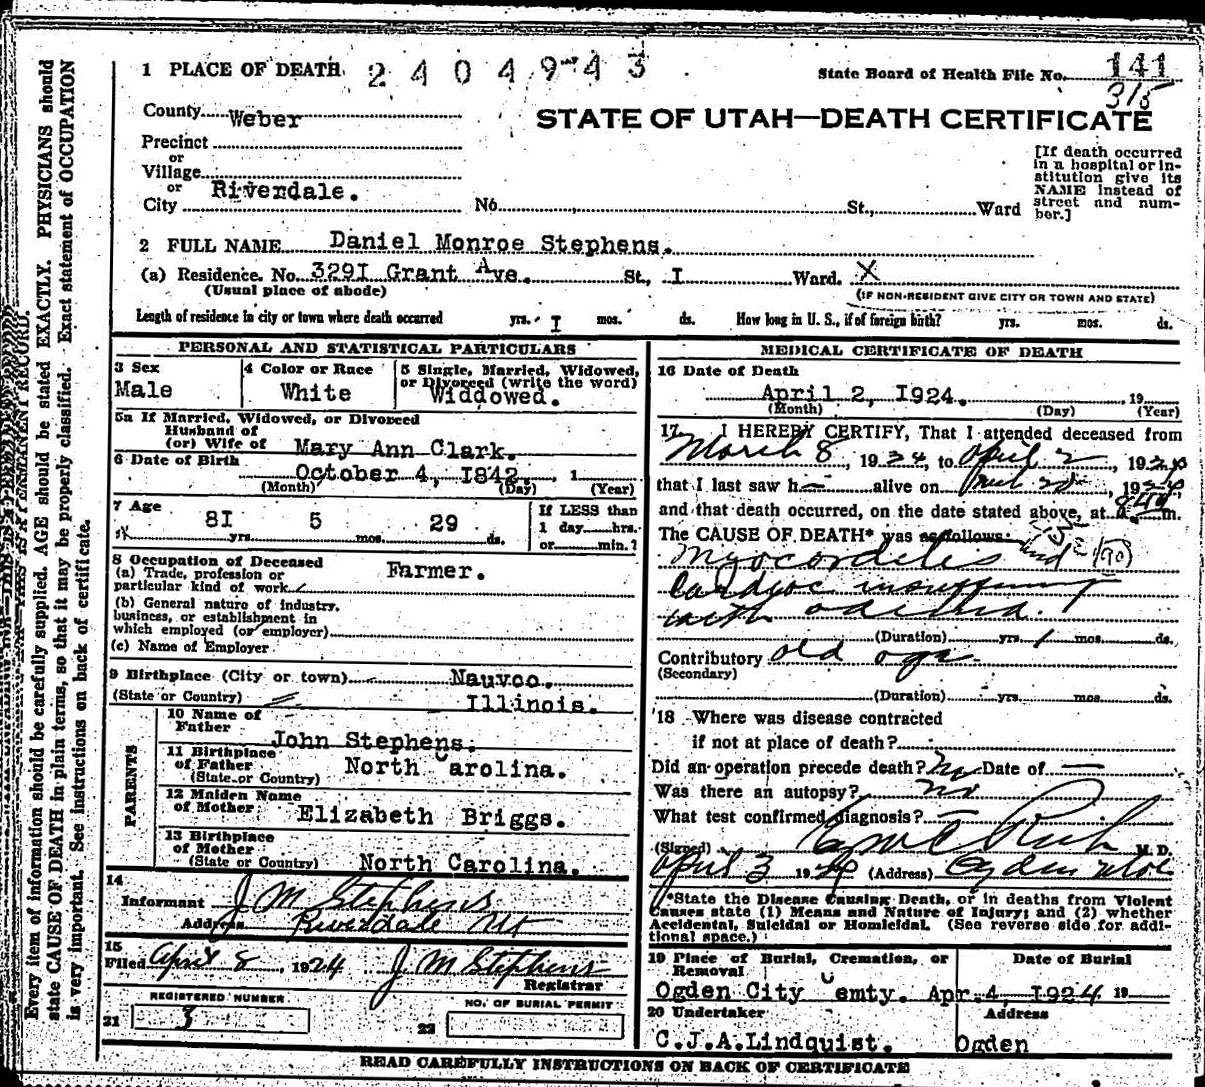 1 PLACE OF DEATH. 2404943
State Board of Health File No. 141
315
County Weber
STATE OF UTAH—DEATH CERTIFICATE
Precinct
or
Village
or Riverdale.
City No. St., Ward
[If death occurred
in a hospital or in-
stitution give its
NAME instead of
street and num-
ber.]
2 FULL NAME Daniel Monroe Stephens.
(a) Residence. No. 329I Grant Ave. St., I Ward. X
(Usual place of abode) (IF NON-RESIDENT GIVE CITY OR TOWN AND STATE)
Length of residence in city or town where death occurred yrs. I mos. ds. How long in U. S., if of foreign birth? yrs. mos. ds.
PERSONAL AND STATISTICAL PARTICULARS
3 Sex
Male
4 Color or Race
White
5 Single, Married, Widowed,
or Divorced (write the word)
Widdowed.
5a If Married, Widowed, or Divorced
Husband of
(or) Wife of Mary Ann Clark.
6 Date of Birth October 4, I842. 1
(Month) (Day) (Year)
7 Age
8I yrs. 5 mos. 29 ds.
If LESS than
1 day hrs.
or min.?
8 Occupation of Deceased
(a) Trade, profession or
particular kind of work Farmer.
(b) General nature of industry,
business, or establishment in
which employed (or employer)
(c) Name of Employer
9 Birthplace (City or town) Nauvoo.
(State or Country) Illinois.
PARENTS
10 Name of
Father John Stephens.
11 Birthplace
of Father North Carolina.
(State or Country)
12 Maiden Name
of Mother Elizabeth Briggs.
13 Birthplace
of Mother
(State or Country) North Carolina.
14
Informant J M Stephens
Address Riverdale Ut
15
Filed April 8, 1924 J M Stephens
Registrar
REGISTERED NUMBER
21 3
NO. OF BURIAL PERMIT
22
MEDICAL CERTIFICATE OF DEATH
16 Date of Death
April 2, I924. 19
(Month) (Day) (Year)
17 I HEREBY CERTIFY, That I attended deceased from
March 8, 1924, to April 2, 1924
that I last saw h alive on 1924
and that death occurred, on the date stated above, at m.
The CAUSE OF DEATH* was as follows:
90
with
(Duration) yrs. 1 mos. ds.
Contributory old age
(Secondary)
(Duration) yrs. mos. ds.
18 Where was disease contracted
if not at place of death?
Did an operation precede death? No Date of —
Was there an autopsy? no
What test confirmed diagnosis?
(Signed) Rich M. D.
April 3 1924 (Address) Ogden Utah
*State the Disease Causing Death, or in deaths from Violent
Causes state (1) Means and Nature of Injury; and (2) whether
Accidental, Suicidal or Homicidal. (See reverse side for addi-
tional space.)
19 Place of Burial, Cremation, or
Removal
Ogden City Cemty.
Date of Burial
Apr. 4, I924 19
20 Undertaker
C.J.A.Lindquist.
Address
Ogden
READ CAREFULLY INSTRUCTIONS ON BACK OF CERTIFICATE
Every item of information should be carefully supplied. AGE should be stated EXACTLY. PHYSICIANS should
state CAUSE OF DEATH in plain terms, so that it may be properly classified. Exact statement of OCCUPATION
is very important. See instructions on back of certificate.